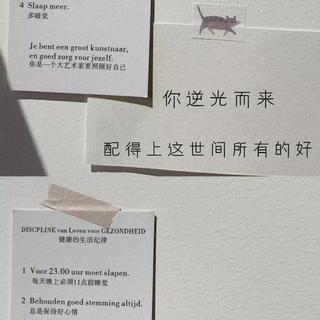 4 Slaap meer.
多睡觉
Je bent een groot kunstnaar,
en goed zorg voor jezelf.
你是一个大艺术家要照顾好自己
你逆光而来
配得上这世间所有的好
DISCPLINE van Leven voor GEZONDHEID
健康的生活纪律
1 Voor 23.00 uur moet slapen.
每天晚上必须11点前睡觉
2 Behouden goed stemming altijd.
总是保持好心情